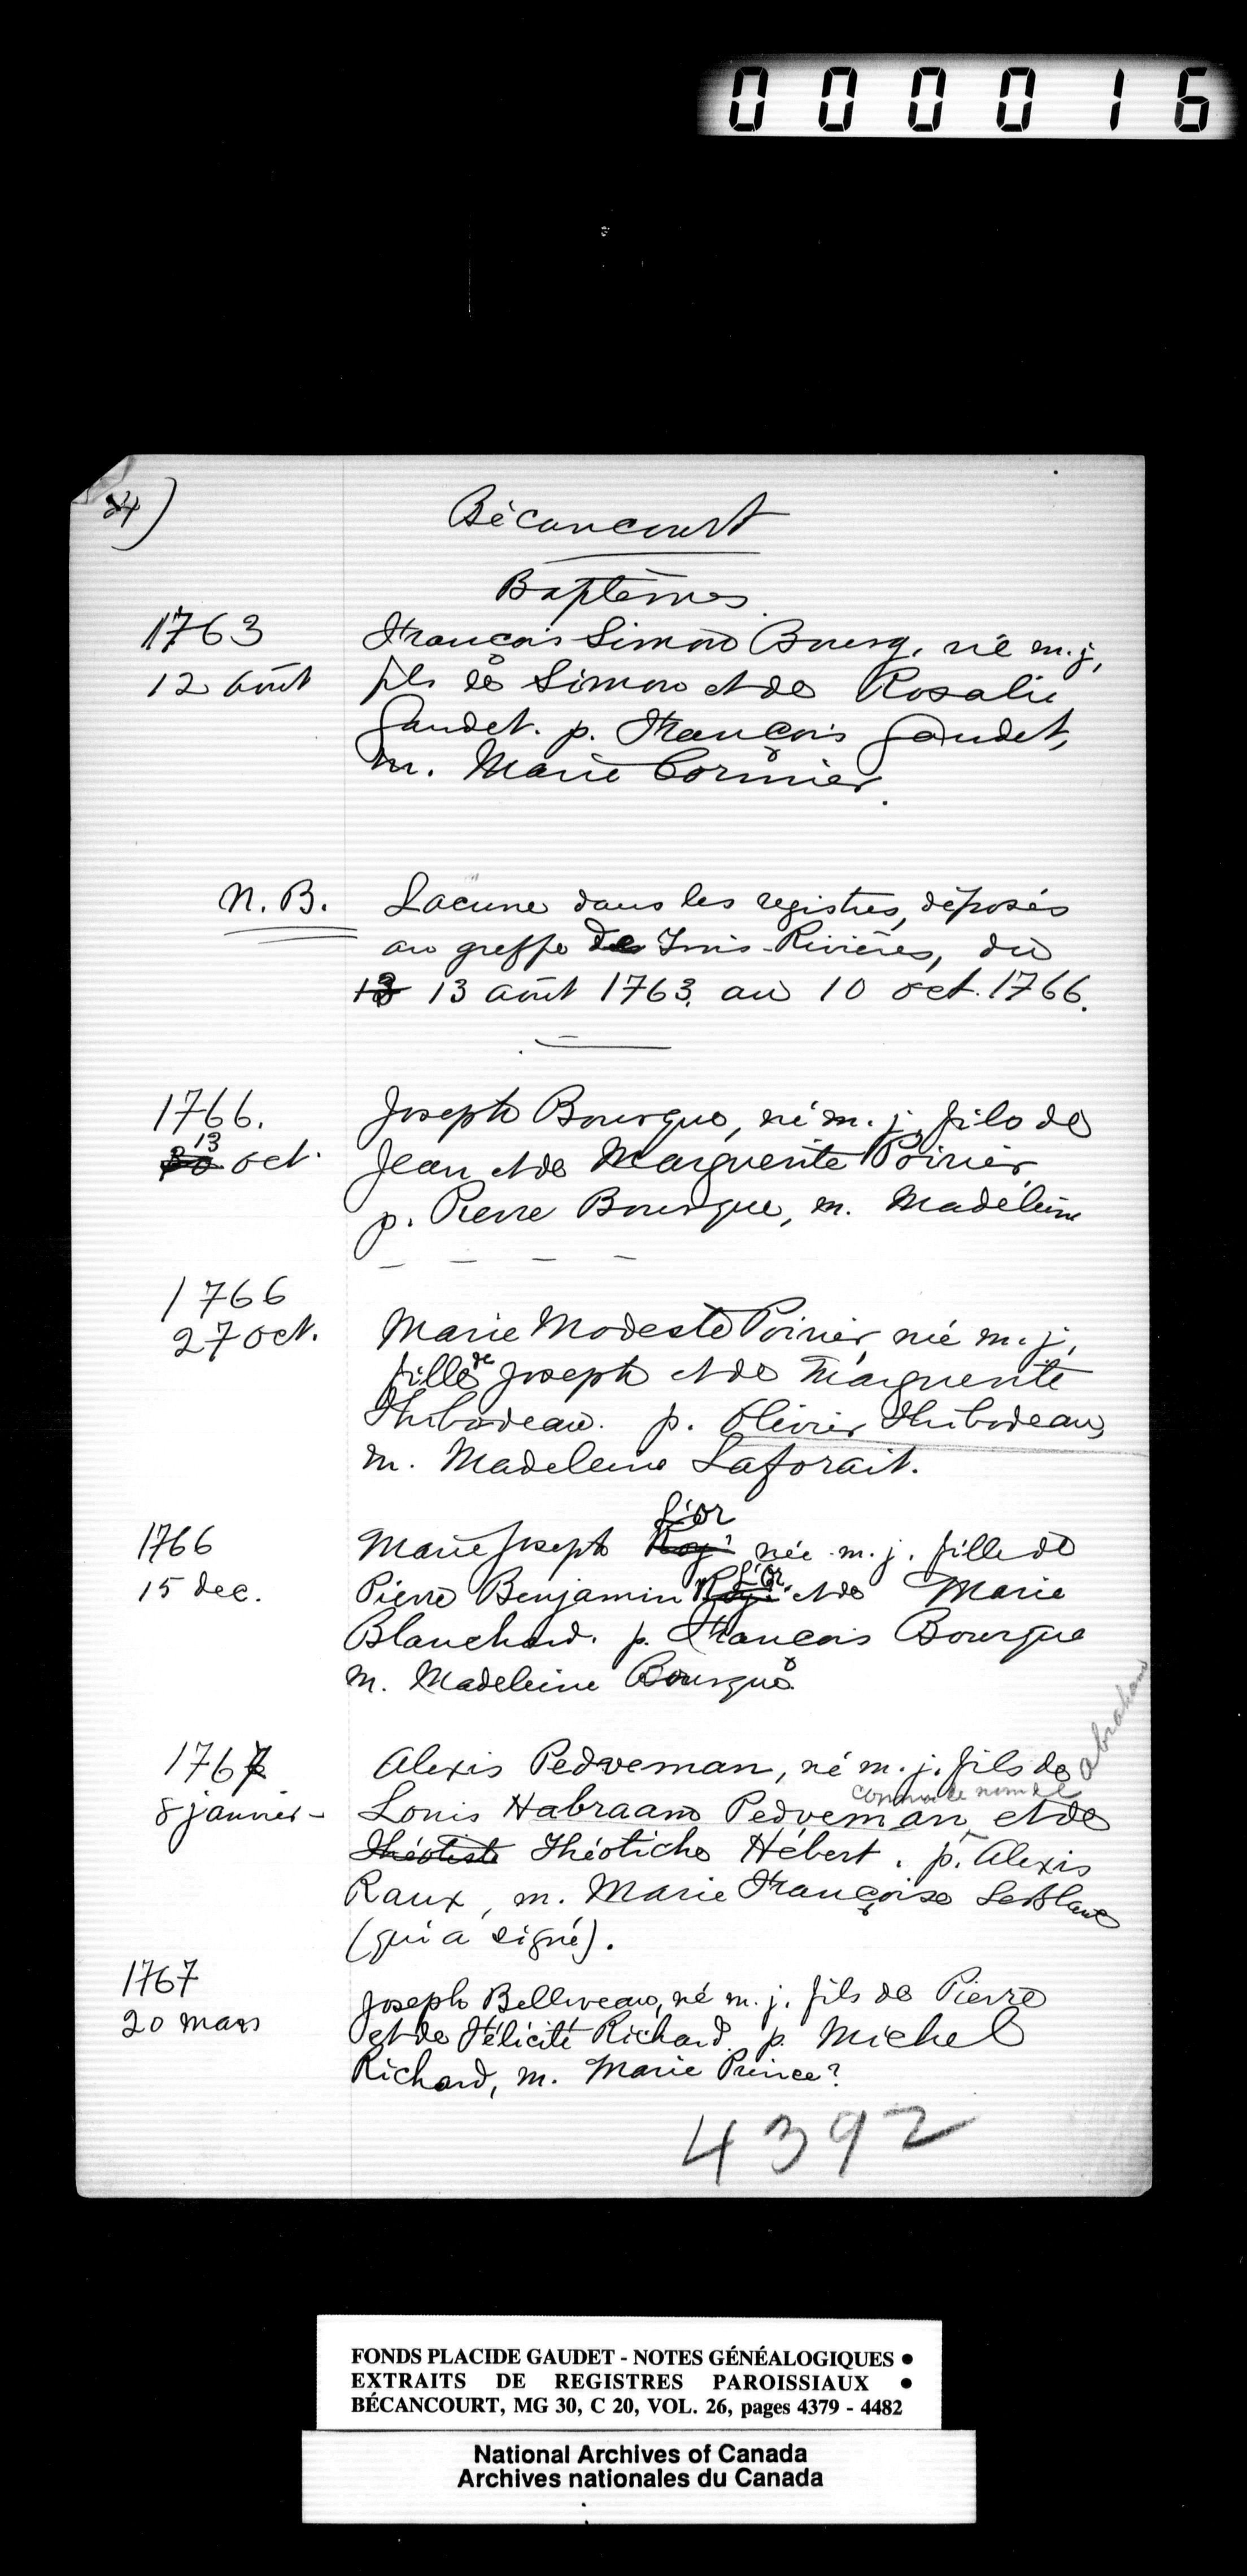 000016
24)
Bécancourt
Baptêmes
1763
12 août
François Simon Bourg, né m.j,
fils de Simon et de Rosalie
Gaudet. p. François Gaudet,
m. Marie Cormier.
N.B. Lacune dans les registres, déposés
au greffe des Trois-Rivières, du
13 13 août 1763. au 10 oct. 1766.
1766.
13
30 oct.
Joseph Bourgue, né m. j. fils de
Jean et de Marguerite Poirier,
p. Pierre Bourgue, m. Madeleine
— — — —
1766
27 oct.
Marie Modeste Poirier, né m. j,
fille de Joseph et de Marguerite
Thibodeau. p. Olivier Thibodeau,
m. Madeleine Laforait.
1766
15 dec.
L'or
Marie Joseph Roy née m. j. fille de
L'or
Pierre Benjamin Roy et de Marie
Blanchard. p. François Bourgue
m. Madeleine Bourgue.
1767
8 janvier -
Alexis Pedveman, né m. j. fils de
Abraham
comme le nom de
Louis Habraam Pedveman, et de
Théotiste Théotiche Hébert. p. Alexis
Raux, m. Marie Françoise LeBlanc
(qui a signé).
1767
20 mars
Joseph Belliveau, né m. j. fils de Pierre
et de Félicité Richard. p. Michel
Richard, m. Marie Prince?
4392
FONDS PLACIDE GAUDET - NOTES GÉNÉALOGIQUES •
EXTRAITS DE REGISTRES PAROISSIAUX •
BÉCANCOURT, MG 30, C 20, VOL. 26, pages 4379 - 4482
National Archives of Canada
Archives nationales du Canada